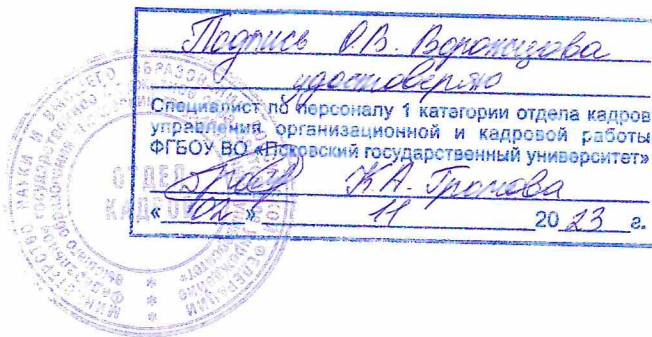 Подпись О.В. Воронцова
удостоверяю
Специалист по персоналу 1 категории отдела кадров
управления организационной и кадровой работы
ФГБОУ ВО «Псковский государственный университет»
К.А. Громова
«02» 11 2023 г.
ОТДЕЛ
КАДРОВ